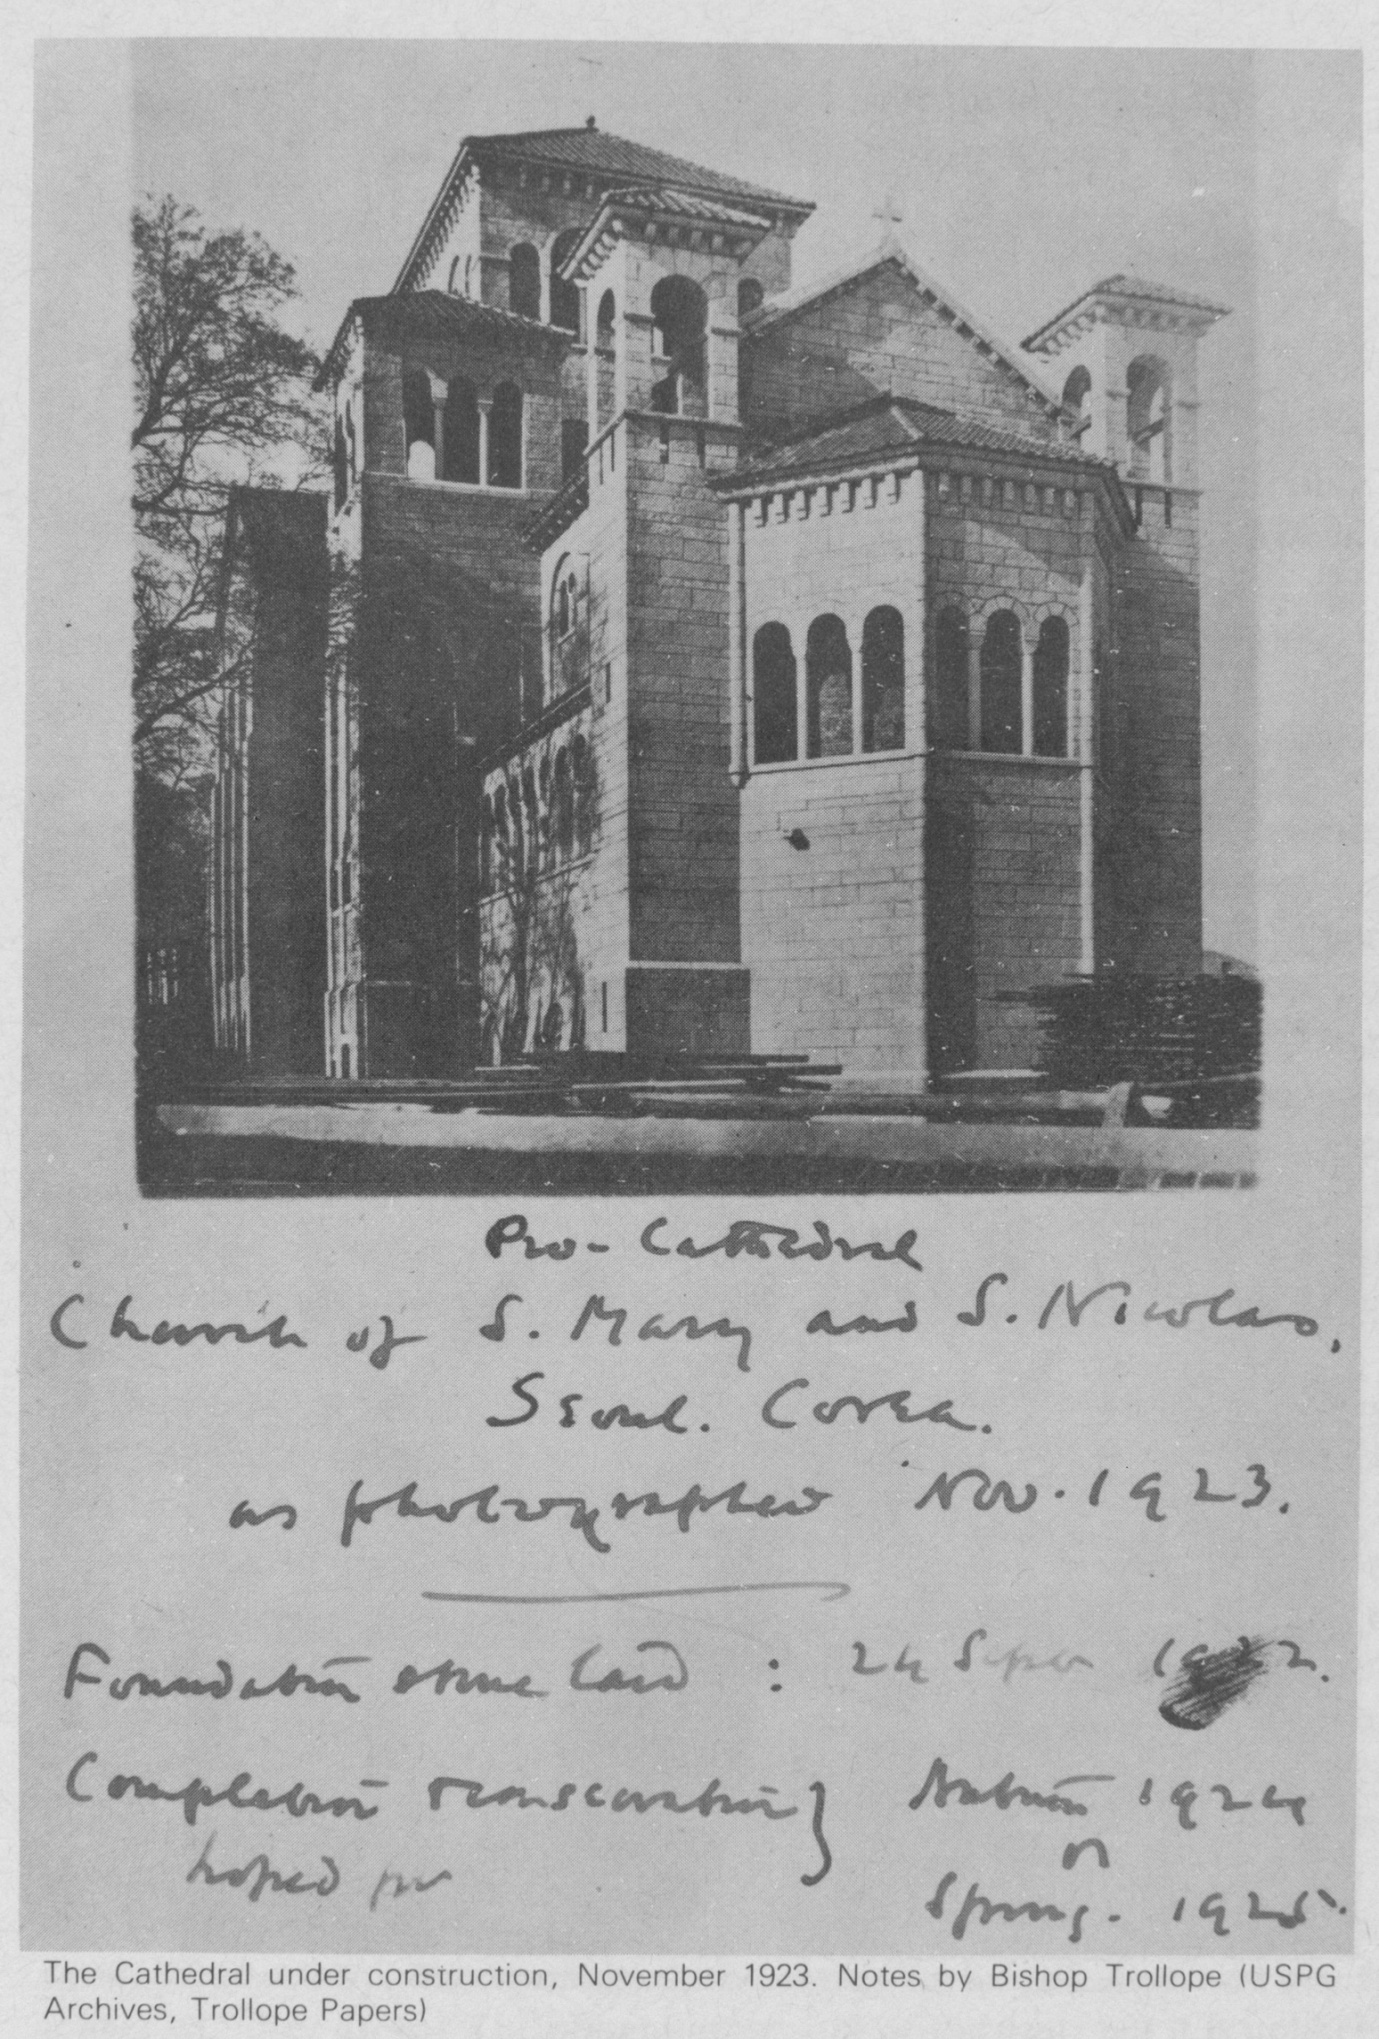 Pro-Cathedral
Church of S. Mary and S. Nicolas,
Seoul. Corea.
as photographed Nov. 1923.
Foundation stone laid : 24 Septr 1922.
Completion & consecration } Autumn 1924
hoped for or
Spring. 1925.
The Cathedral under construction, November 1923. Notes by Bishop Trollope (USPG
Archives, Trollope Papers)